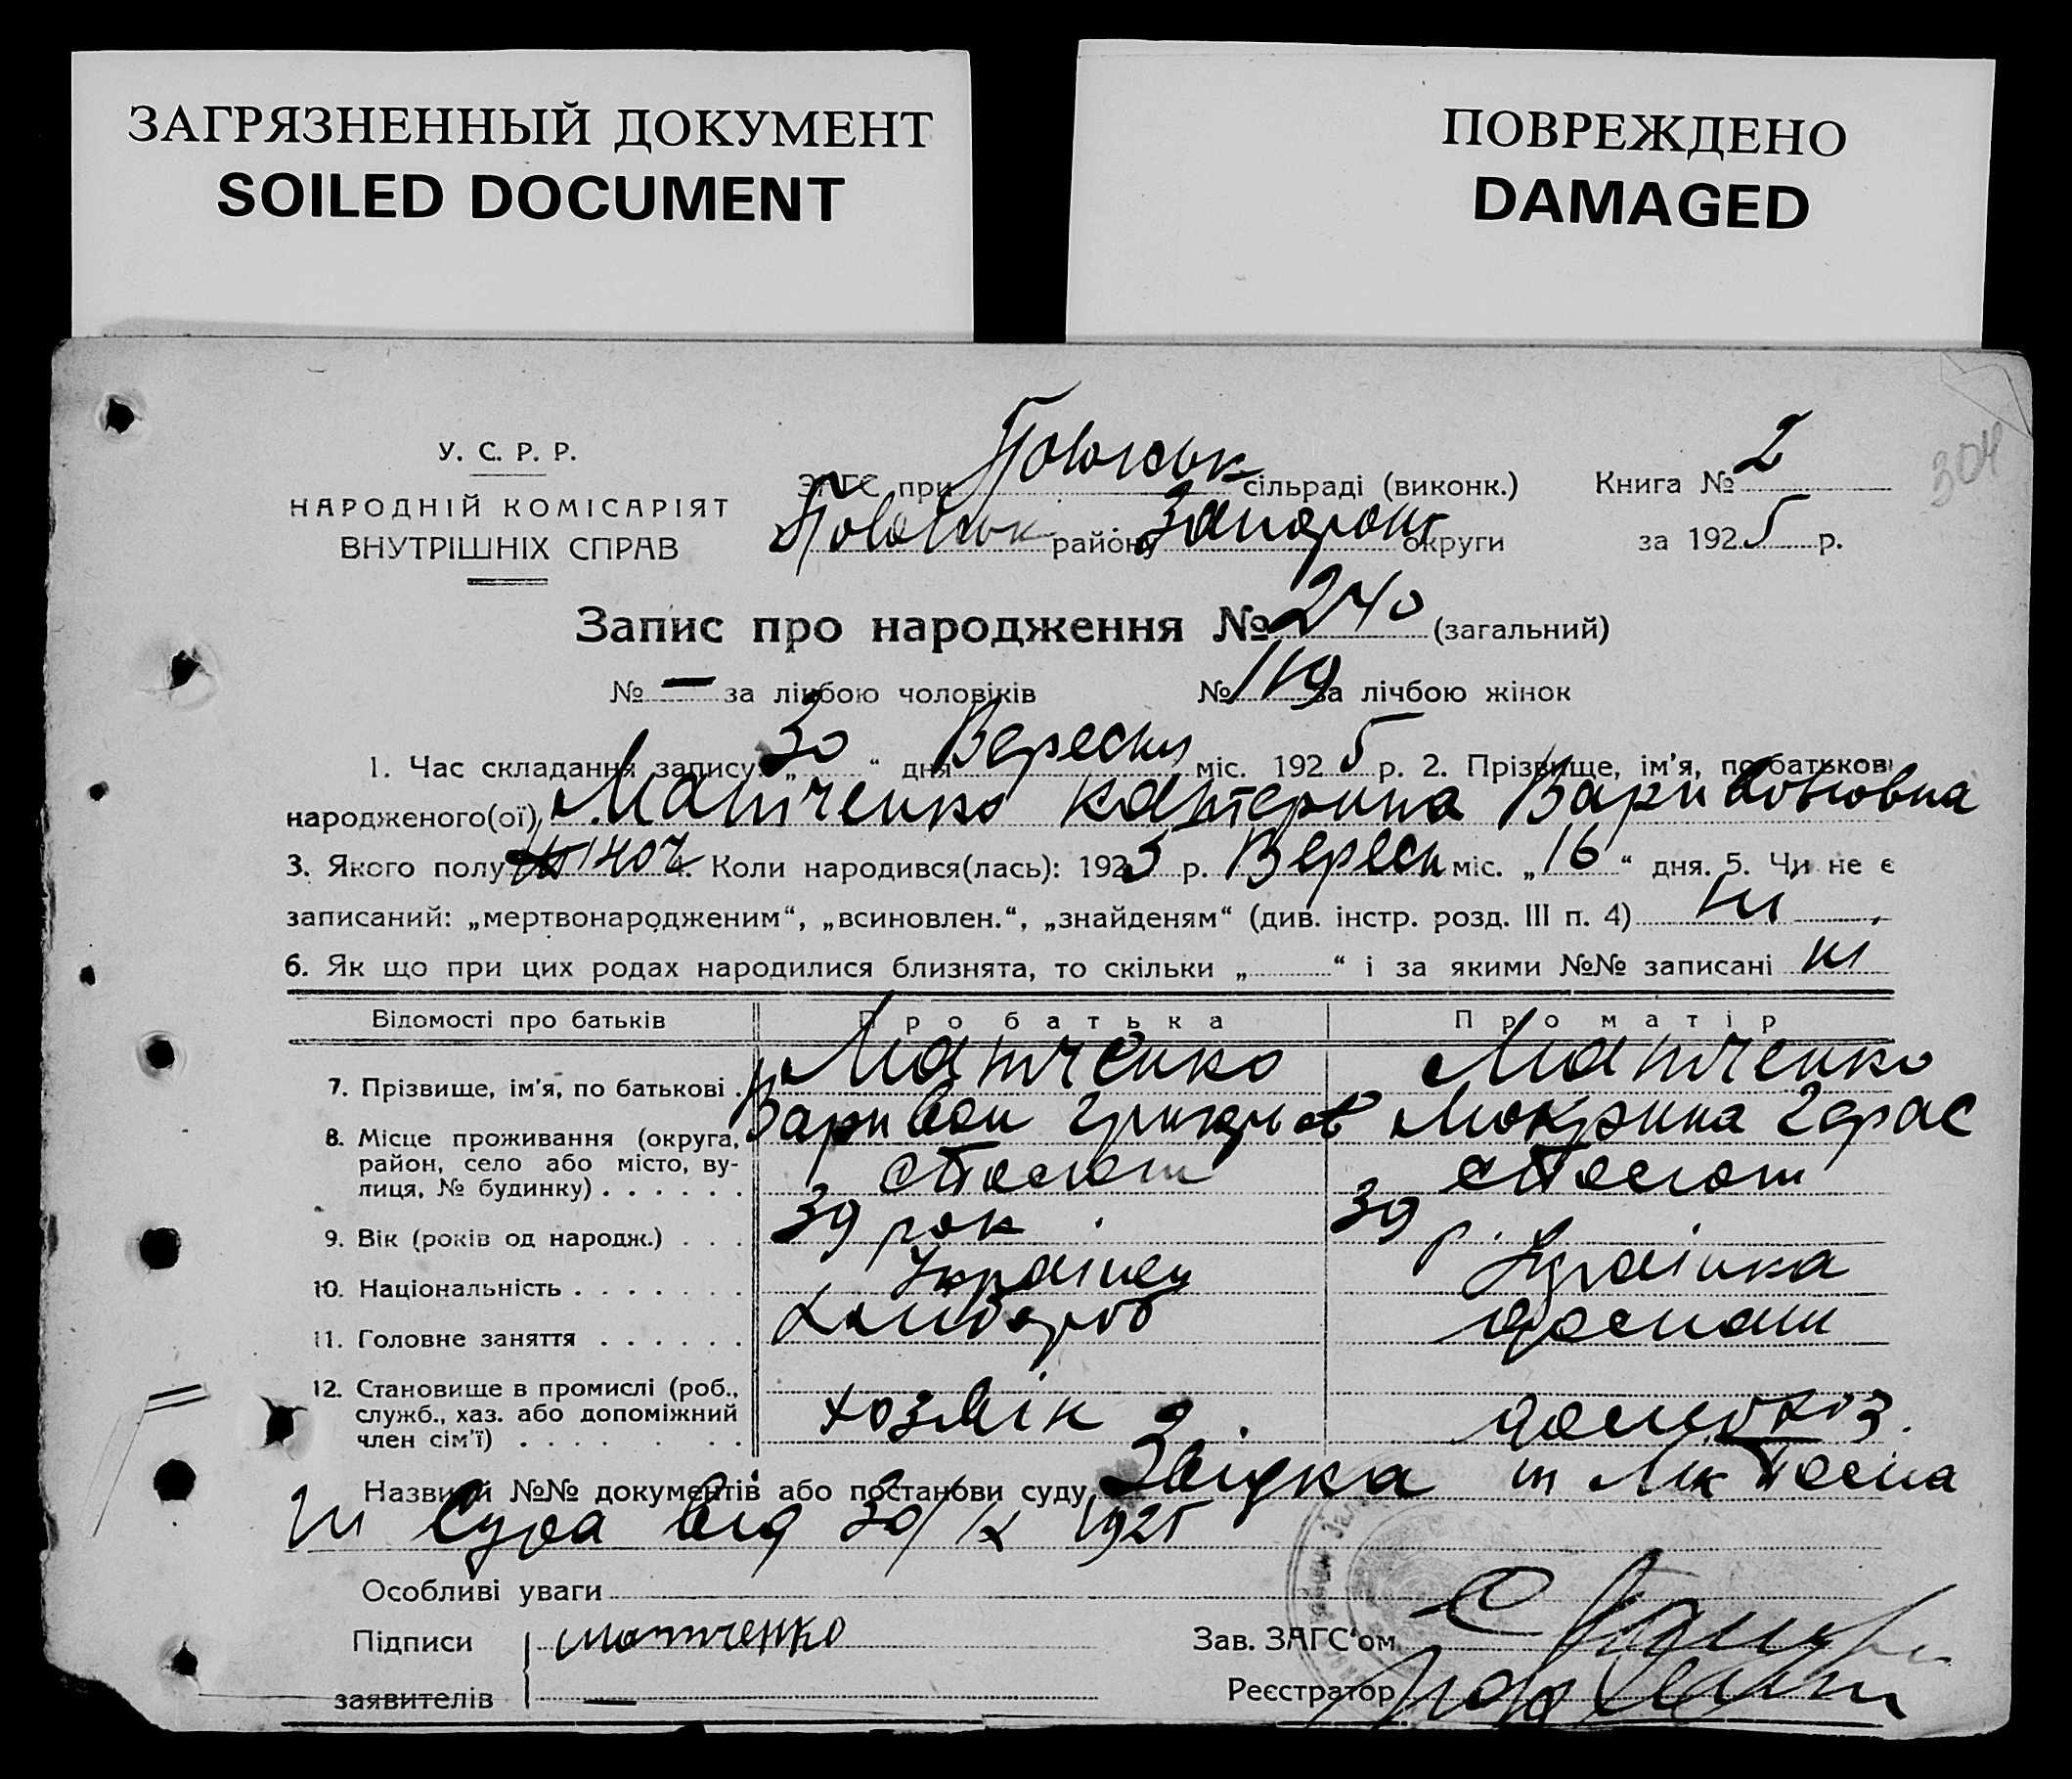 ЗАГРЯЗНЕННЫЙ ДОКУМЕНТ
SOILED DOCUMENT
ПОВРЕЖДЕНО
DAMAGED
304
У. С. Р. Р.
НАРОДНІЙ КОМІСАРІЯТ
ВНУТРІШНІХ СПРАВ
ЗАГС при сільраді (виконк.) Книга № 2
району Запоріж округи за 1925 р.
Запис про народження № 240 (загальний)
№ — за лічбою чоловіків № 119 за лічбою жінок
1. Час складання запису: „30“ дня Вересня міс. 1925 р. 2. Прізвище, ім'я, по батькові
народженого(ої) Матченко Катерина Варивоновна
3. Якого полу жоч 4. Коли народився(лась): 1925 р. Вересн міс. „16“ дня. 5. Чи не є
записаний: „мертвонародженим“, „всиновлен.“, „знайденям“ (див. інстр. розд. III п. 4) ні
6. Як що при цих родах народилися близнята, то скільки „ “ і за якими №№ записані ні
Відомості про батьків Про батька Про матір
7. Прізвище, ім'я, по батькові . Матченко Матченко
Варивон Мокрина Герас
8. Місце проживання (округа,
район, село або місто, ву-
лиця, № будинку) . . . . . .
9. Вік (років од народж.) . . . 39 рок 39 р.
10. Національність . . . . . . . Українец Українка
11. Головне заняття . . . . . . Хлібороб
12. Становище в промислі (роб.,
служб., хаз. або допоміжний
член сім'ї) . . . . . . .
Назви й №№ документів або постанови суду
від 30/IX 1925
Особливі уваги
Підписи Матченко Зав. ЗАГС'ом
заявителів — Реєстратор